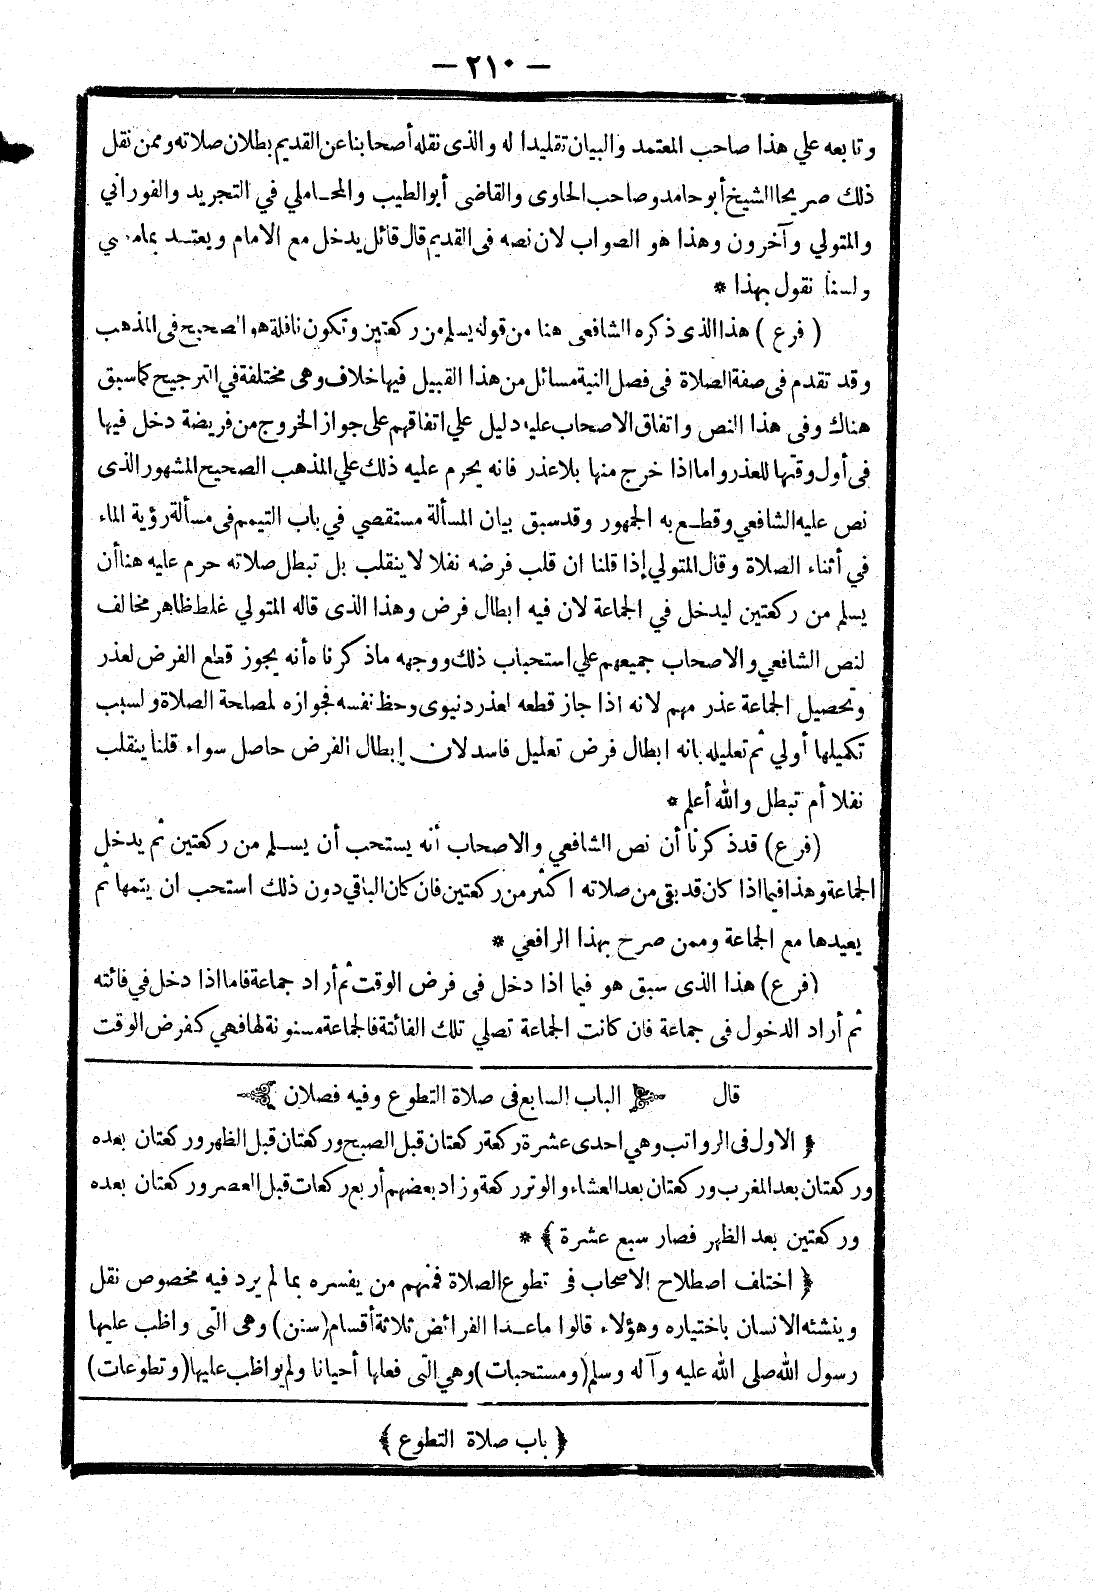 — ٢١٠ —
وتابعه علي هذا صاحب المعتمد والبيان تقليدا له والذى نقله أصحابنا عن القديم بطلان صلاته وممن نقل
ذلك صريحا الشيخ أبو حامد وصاحب الحاوى والقاضى أبو الطيب والمحاملي في التجريد والفوراني
والمتولي وآخرون وهذا هو الصواب لان نصه فى القديم قال قائل يدخل مع الامام ويعتد بما
ولسنا نقول بهذا *
( فرع ) هذا الذى ذكره الشافعى هنا من قوله يسلم من ركعتين وتكون نافلة هو الصحيح فى المذهب
وقد تقدم فى صفة الصلاة فى فصل النية مسائل من هذا القبيل فيها خلاف وهى مختلفة في الترجيح كما سبق
هناك وفى هذا النص واتفاق الاصحاب عليه دليل علي اتفاقهم على جواز الخروج من فريضة دخل فيها
فى أول وقتها للعذر واما اذا خرج منها بلا عذر فانه يحرم عليه ذلك علي المذهب الصحيح المشهور الذى
نص عليه الشافعي وقطع به الجمهور وقد سبق بيان المسألة مستقصي في باب التيمم فى مسألة رؤية الماء
في أثناء الصلاة وقال المتولي إذا قلنا ان قلب فرضه نفلا لا ينقلب بل تبطل صلاته حرم عليه هنا أن
يسلم من ركعتين ليدخل في الجماعة لان فيه ابطال فرض وهذا الذى قاله المتولي غلط ظاهر مخالف
لنص الشافعي والاصحاب جميعهم علي استحباب ذلك ووجهه ماذكرناه أنه يجوز قطع الفرض لعذر
وتحصيل الجماعة عذر مهم لانه اذا جاز قطعه لعذر دنيوى وحظ نفسه فجوازه لمصلحة الصلاة ولسبب
تكميلها أولي ثم تعليله بانه ابطال فرض تعليل فاسد لان إبطال الفرض حاصل سواء قلنا ينقلب
نفلا أم تبطل والله أعلم *
(فرع) قد ذكرنا أن نص الشافعي والاصحاب أنه يستحب أن يسلم من ركعتين ثم يدخل
الجماعة وهذا فيما اذا كان قد بقى من صلاته اكثر من ركعتين فان كان الباقي دون ذلك استحب ان يتمها ثم
يعيدها مع الجماعة وممن صرح بهذا الرافعي *
(فرع) هذا الذى سبق هو فيما اذا دخل فى فرض الوقت ثم أراد جماعة فاما اذا دخل في فائتة
ثم أراد الدخول فى جماعة فان كانت الجماعة تصلي تلك الفائتة فالجماعة مسنونة لها فهي كفرض الوقت
قال الباب السابع فى صلاة التطوع وفيه فصلان
﴿ الاول فى الرواتب وهي احدى عشرة ركعة ركعتان قبل الصبح وركعتان قبل الظهر وركعتان بعده
وركعتان بعد المغرب وركعتان بعد العشاء والوتر ركعة وزاد بعضهم أربع ركعات قبل العصر وركعتان بعده
وركعتين بعد الظهر فصار سبع عشرة ﴾ *
﴿ اختلف اصطلاح الاصحاب فى تطوع الصلاة فمنهم من يفسره بما لم يرد فيه مخصوص نقل
وينشئه الانسان باختياره وهؤلاء قالوا ماعدا الفرائض ثلاثة أقسام (سنن) وهى التى واظب عليها
رسول الله صلى الله عليه وآله وسلم (ومستحبات) وهي التى فعلها أحيانا ولم يواظب عليها (وتطوعات)
﴿ باب صلاة التطوع ﴾